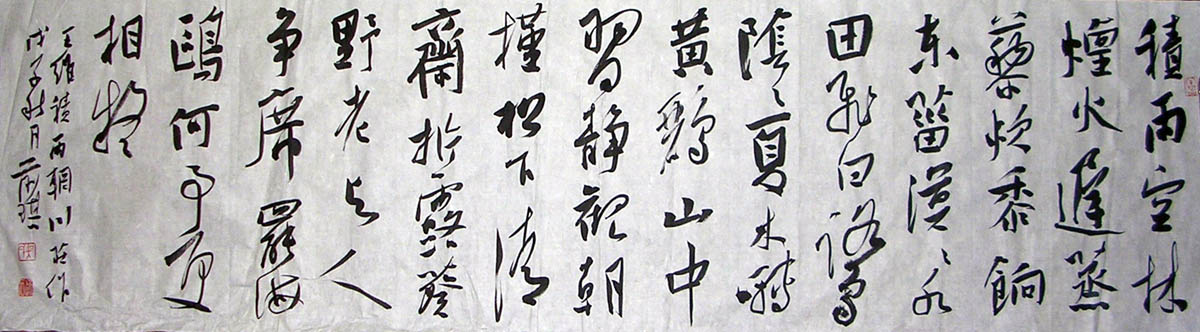 積雨空林
煙火遲蒸
藜炊黍餉
东菑漠〻水
田飛白鷺
陰〻夏木囀
黄鸝山中
習静觀朝
槿松下清
齋折露葵
野老与人
争席罷海
鷗何事更
相疑
王維積雨輞川莊作
戊子秋月